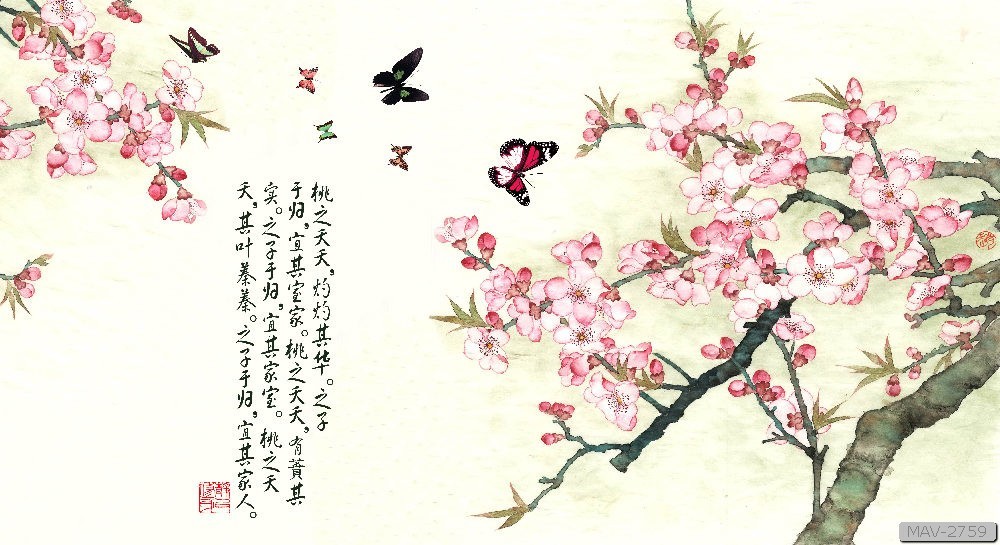 桃之夭夭，灼灼其华。之子
于归，宜其室家。桃之夭夭，有蕡其
实。之子于归，宜其家室。桃之夭
夭，其叶蓁蓁。之子于归，宜其家人。
MAV-2759